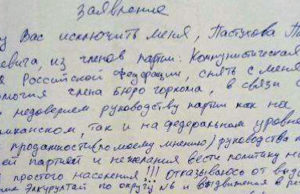 заявление
Вас исключить меня, Пастухова
евича, из членов партии: Коммунистическая
Российской Федерации, снять с меня
мочия члена бюро горкома, в связи
недоверием руководству партии как на
ликанском, так и на федеральном уровне
продажности (по моему мнению) руководства
ей партией и нежелания вести политику
простого населения!!! отказываюсь от
по округу № и выдвижения в